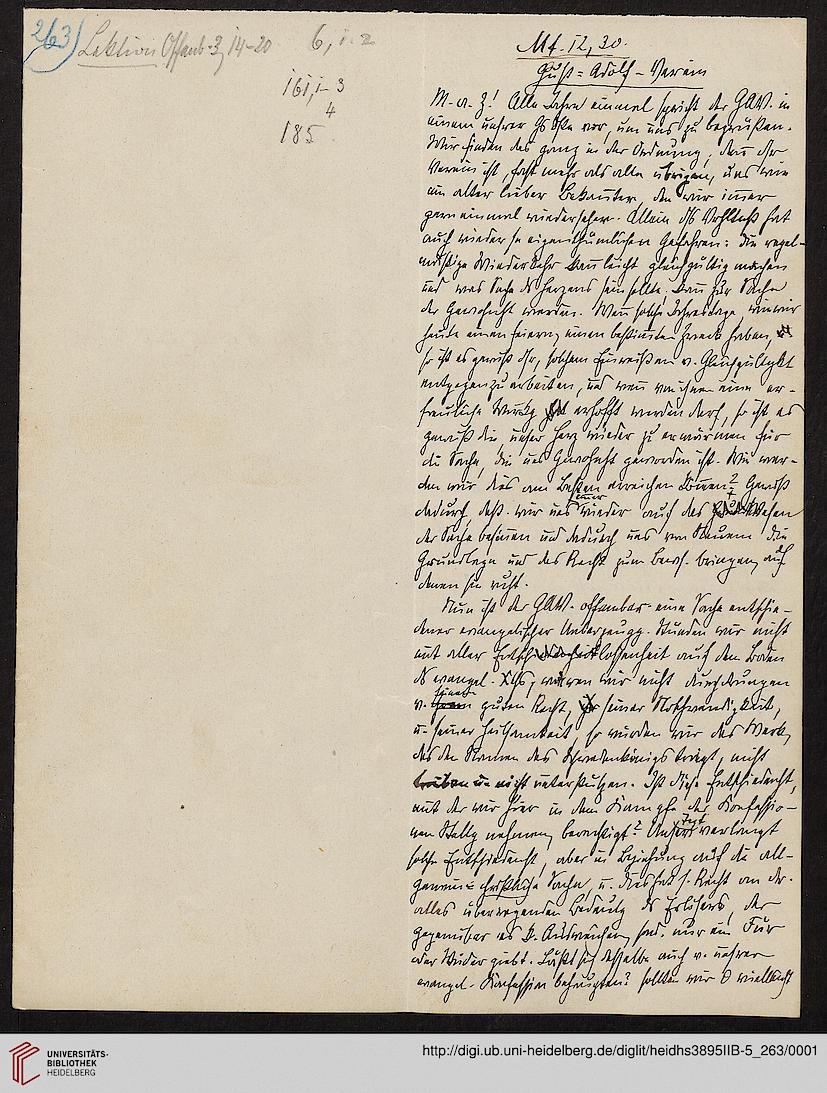 263) Lektion Offenb. 3, 14-20 6, 1. 2
161, 1-3
4
185
Mt. 12, 30.
Gust=Adolf-Verein
M. a. Z! Alle Jahre einmal spricht der GAV. in
einem unsrer vor, um uns zu begrüßen.
Wir finden das ganz in der Ordnung, denn dsr
Verein ist, fast mehr als alle übrigen, uns wie
ein alter lieber Bekannter, den wir immer
gern einmal wiedersehen. Allein dss Vhltniß hat
auch wieder se eigenthümlichen Gefahren: die regel-
mäßige Wiederkehr kann leicht gleichgültig machen
und was Sache ds Herzens sein sollte, kann zur Sache
der Gewohnheit werden. Wenn solche Jahrestage, wie wir
heute einen feiern, einen bestimmten Zweck haben,
so ist es gewiß dsr, solchem Einreißen v. Gleichgültigkt
entgegenzuarbeiten, und wenn von ihnen eine er-
freuliche Wirkg erhofft werden darf, so ist es
gewiß die, unser Herz wieder zu erwärmen für
die Sache, die uns Gewohnht geworden ist. Wie wer-
den wir dies am Besten erreichen können? Gewiß
dadurch, daß wir uns immer wieder auf das Wesen
der Sache besinnen und dadurch uns von Neuem die
Grundlage und das Recht zum Bews. bringen, auf
denen sie ruht.
Nun ist der GAV. offenbar eine Sache entschie-
dener evangelischer Ueberzeugg. Stünden wir nicht
mit aller Entschlossenheit auf dem Boden
ds evangel. Xths, wären wir nicht durchdrungen
v. seinem guten Recht, seiner Nothwendigkeit,
u. seiner Heilsamkeit, so würden wir das Werk,
das den Namen des Schwedenkönigs trägt, nicht
unterstützen. Ist diese Entschiedenht,
mit der wir hier in dem Kampfe der Konfessio-
nen Stellg nehmen, berechtigt? Unser Text verlangt
solche Entschiedenht, aber in Beziehung auf die all-
gemein=christliche Sache, u. dies hat s. Recht an der
alles überragenden Bedeutg ds Erlösers, der
gegenüber es k. Ausweichen, sond. nur ein Für
oder Wider giebt. Läßt sich dasselbe auch v. unsrer
evangel. Konfession behaupten? sollten wir 0 vielleicht
UNIVERSITÄTS-
BIBLIOTHEK
HEIDELBERG
http://digi.ub.uni-heidelberg.de/diglit/heidhs3895IIB-5_263/0001